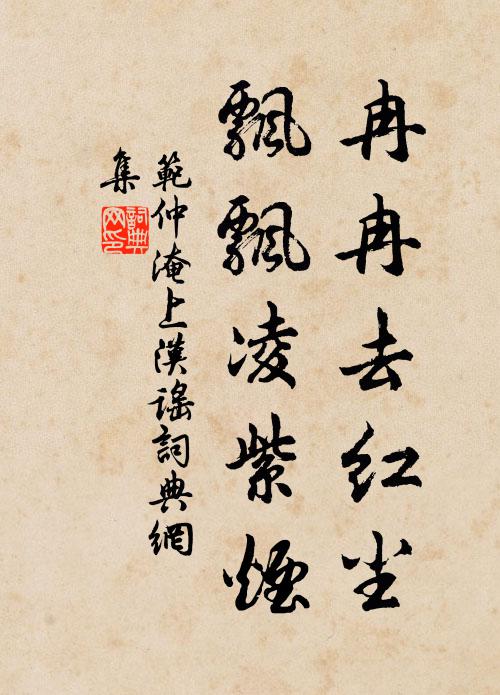 冉冉去红尘
飘飘凌紫煙
範仲淹上漢謠詞典網
集
詞典
网印